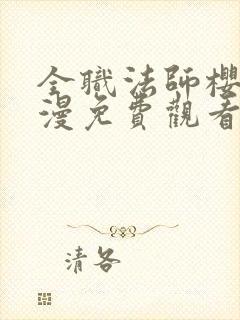 全職法師櫻
漫免費觀看
清各